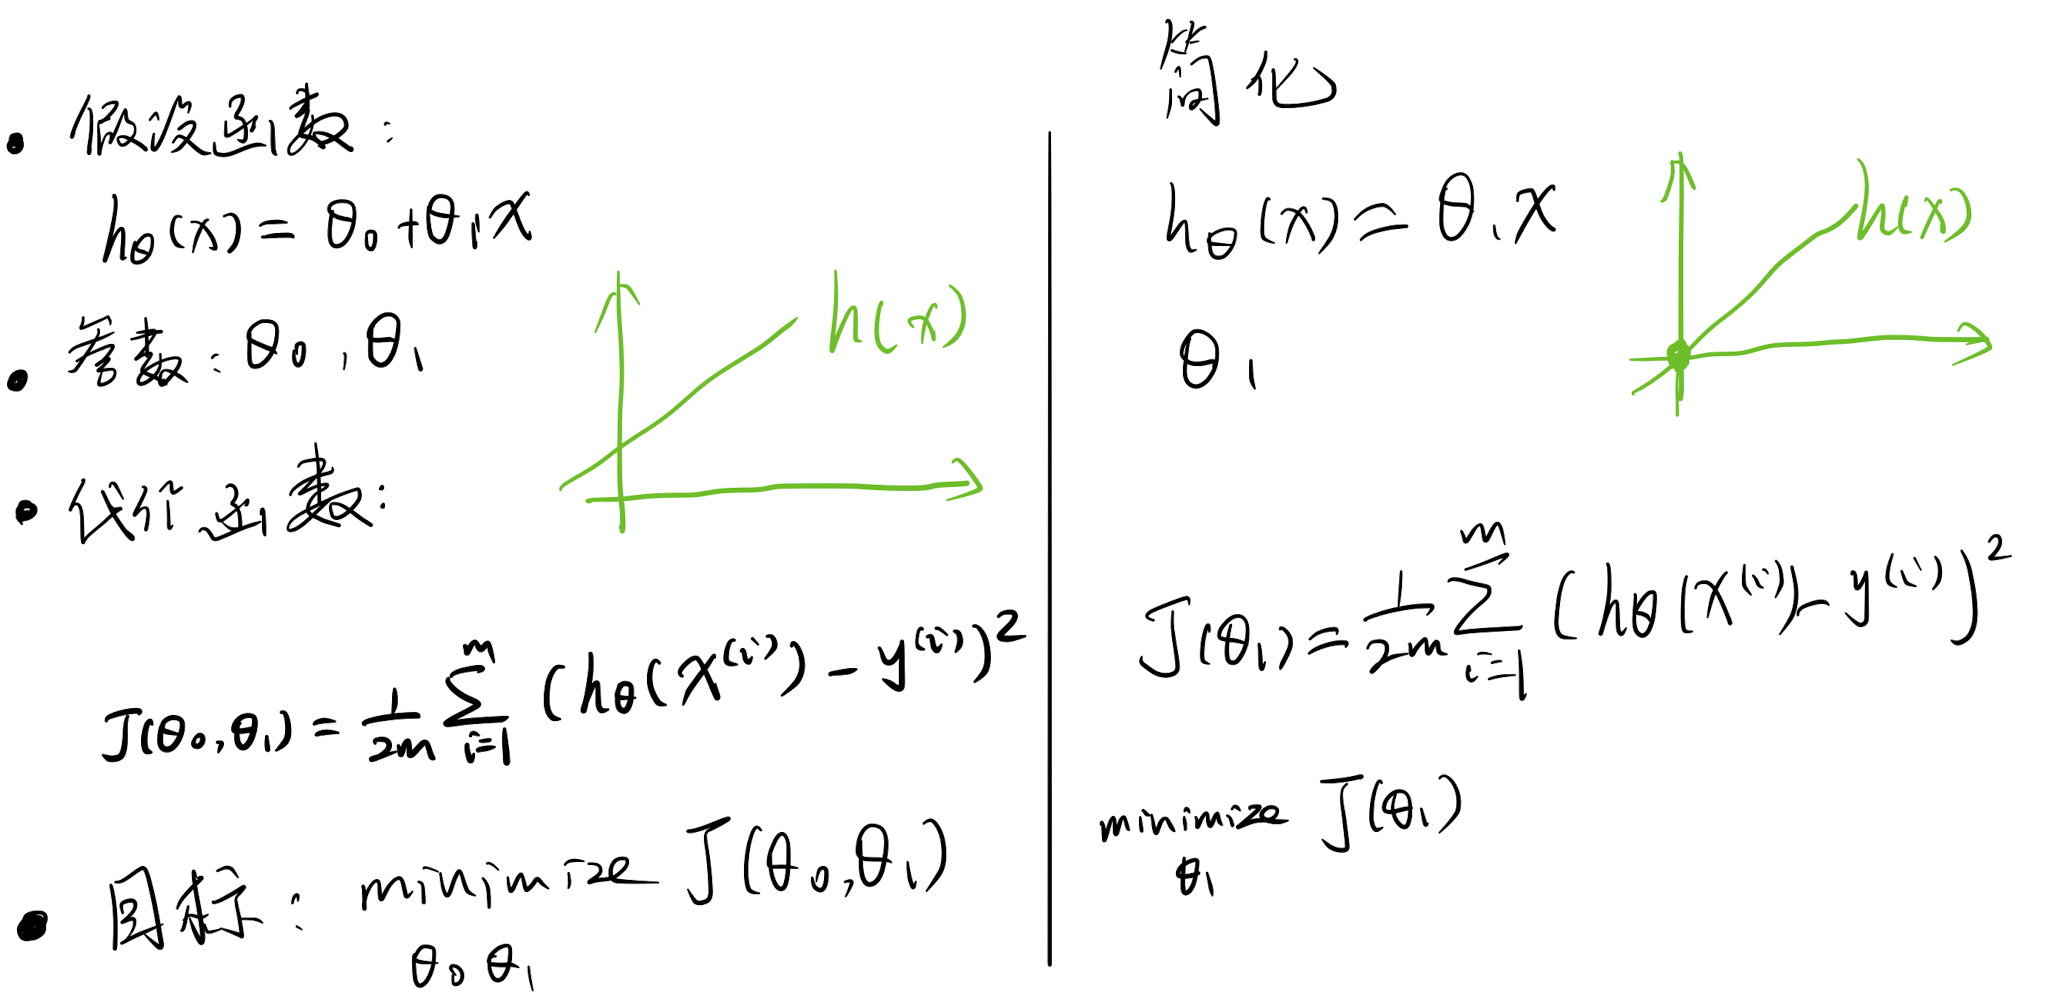 • 假设函数：
hθ(x) = θ₀+θ₁x
• 参数：θ₀，θ₁
h(x)
• 代价函数：
J(θ₀,θ₁) = \frac{1}{2m} \sum_{i=1}^{m} (hθ(x⁽ⁱ⁾) - y⁽ⁱ⁾)²
• 目标： minimize J(θ₀,θ₁)
θ₀ θ₁
简化
hθ(x) = θ₁x
h(x)
θ₁
J(θ₁) = \frac{1}{2m} \sum_{i=1}^{m} (hθ(x⁽ⁱ⁾) - y⁽ⁱ⁾)²
minimize J(θ₁)
θ₁